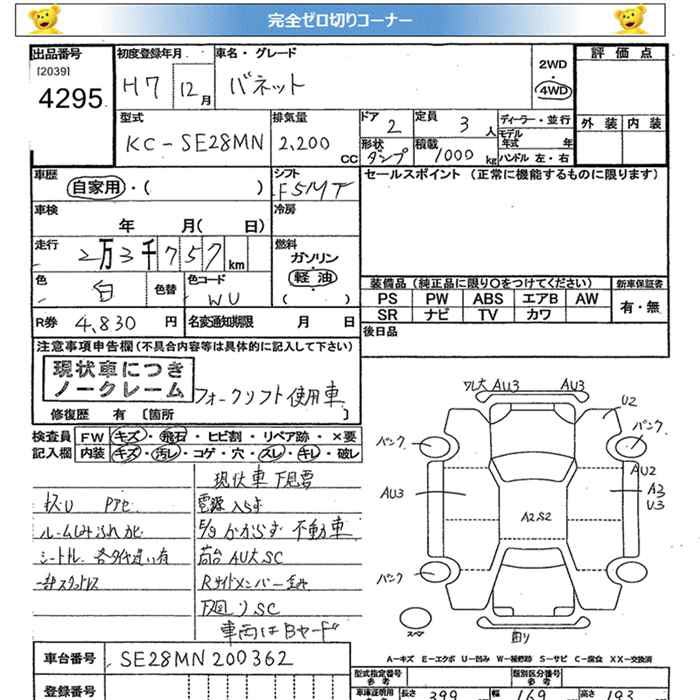 完全ゼロ切りコーナー
出品番号 初度登録年月 車名・グレード 2WD 評価点
[2039]
4295 H7 12月 バネット 4WD
型式 排気量 ドア 2 定員 3人 ディーラー・並行 外装 内装
KC-SE28MN 2,200 CC 形状 ダンプ 積載 1000kg モデル年式 年
ハンドル 左・右
車歴 シフト セールスポイント (正常に機能するものに限ります)
自家用・( ) F5MT
車検 冷房
年 月( 日)
走行 燃料
2万3千757km ガソリン・軽油
( )
色 白 色替 色コード WU 装備品 (純正品に限り○をつけてください) 新車保証書
PS PW ABS エアB AW 有・無
SR ナビ TV カワ
R券 4,830円 名変通知期限 月 日 後日品
注意事項申告欄(不具合内容等は具体的に記入して下さい)
現状車につき
ノークレーム フォークリフト使用車
修復歴 有 [箇所 ]
検査員 FW キズ・飛石・ヒビ割・リペア跡・×要
記入欄 内装 キズ・汚レ・コゲ・穴・スレ・キレ・破レ
現状車 下見要
電源入らず
E/gかからず 不動車
荷台 AU大 SC
Rサイドメンバー
下廻りSC
車両はBヤード
ルーム
シート
ワレ大 AU3 AU3
U2
パンク パンク
AU2
AU3 A3
U3
A2S2
パンク
スペア 回り
A-キズ E-エクボ U-凹み W-補修跡 S-サビ C-腐食 XX-交換済
車台番号 SE28MN200362
型式指定番号 参考 類別区分番号 参考
登録番号 車庫証明用 参考 長さ 399 幅 169 高さ 193